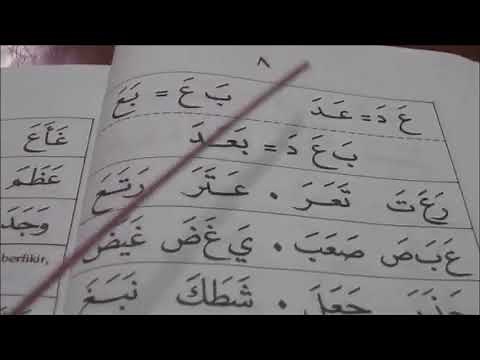 ٨
عَ دَ = عَـدَ بَ عَ = بَعَ
بَ عَ دَ = بَعَـدَ
رَ عَ تَ تَعَرَ . عَـتَرَ رَتَـعَ
عَ بَ صَ صَعَبَ . يَ غَ ضَ غَيَضَ
جَعَلَ . شَطَكَ نَبَغَ
غَأَعَ
عَظَمَ
وَجَدَ
berfikir,